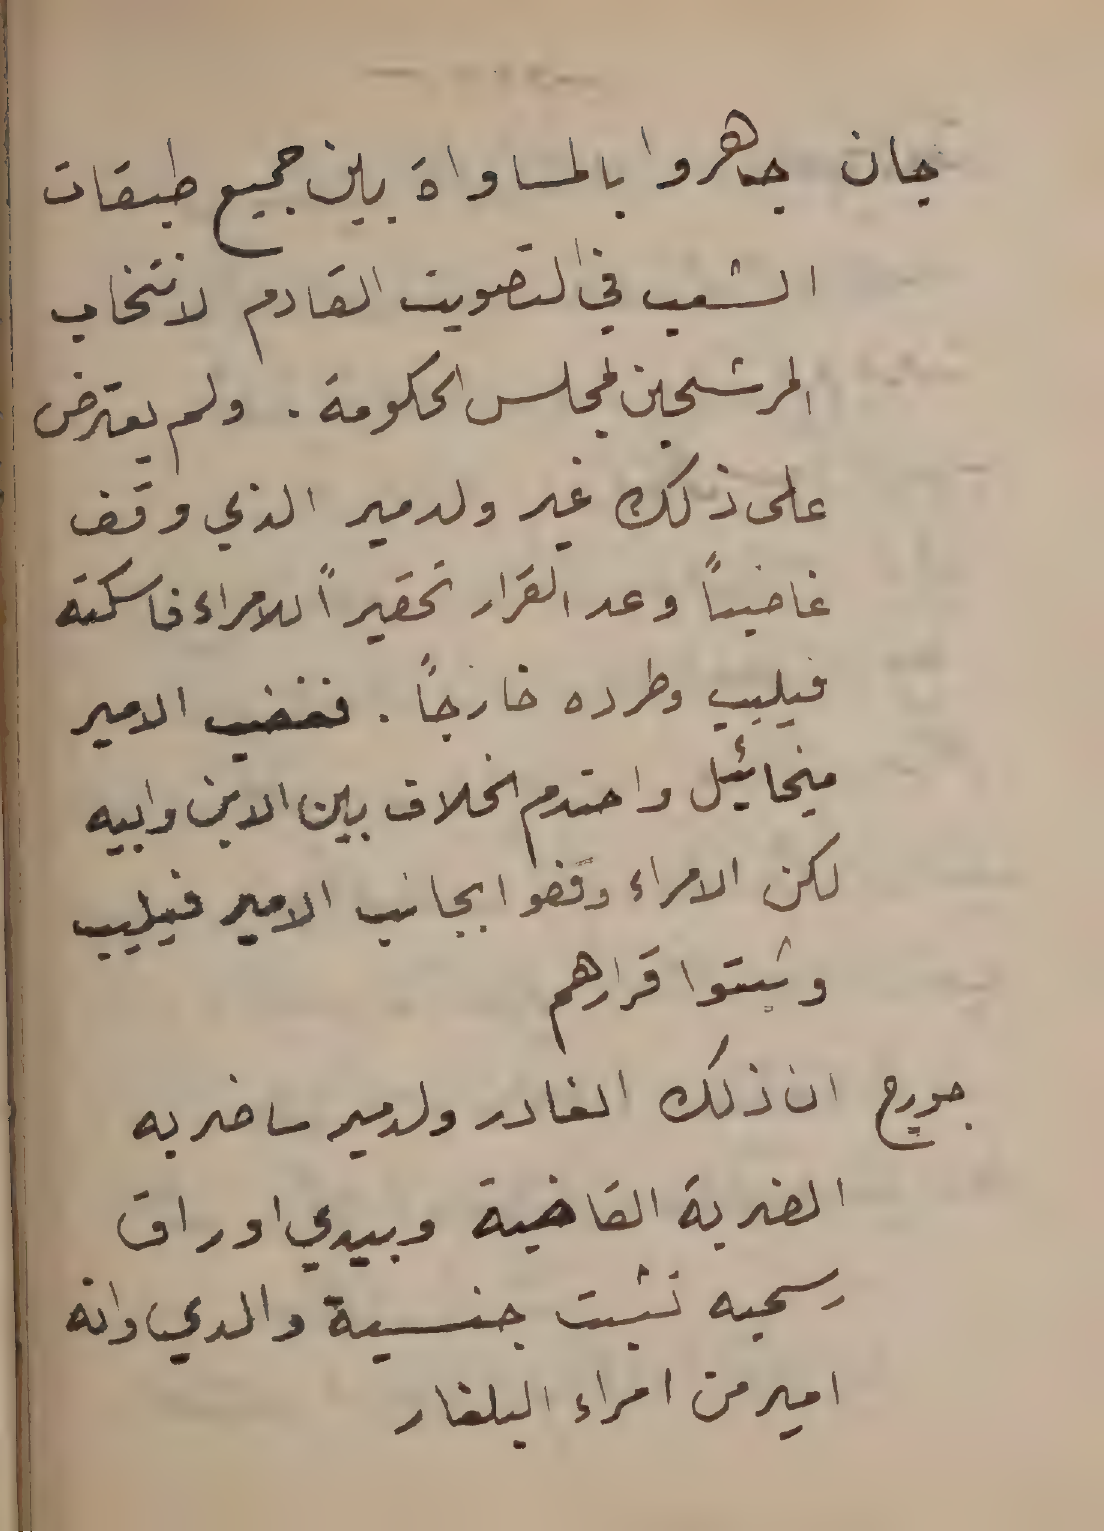 جان جاهروا بالمساواة بين جميع طبقات
الشعب في التصويت القادم لانتخاب
المرشحين لمجلس الحكومة . ولم يعترض
على ذلك غير ولدمير الذي وقف
غاضباً وعد القرار تحقيراً للامراء فاسكته
فيليب وطرده خارجاً . فغضب الامير
ميخائيل واحتدم الخلاف بين الابن وابيه
لكن الامراء وقفوا بجانب الامير فيليب
وثبتوا قرارهم
جورج ان ذلك الغادر ولدمير ساضربه
الضربة القاضية وبيدي اوراق
رسميه تثبت جنسية والدي وانه
امير من امراء البلغار